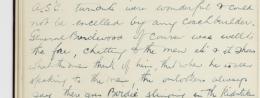 A.S.C. turnouts were wonderful & could
not be excelled by any coachbuilder.
General Birdwood of course was well to
the fore, chatting to the men etc & it shows
what the men think of him, that when he is
speaking to the men the onlookers always
say there goes Birdie slinging in the